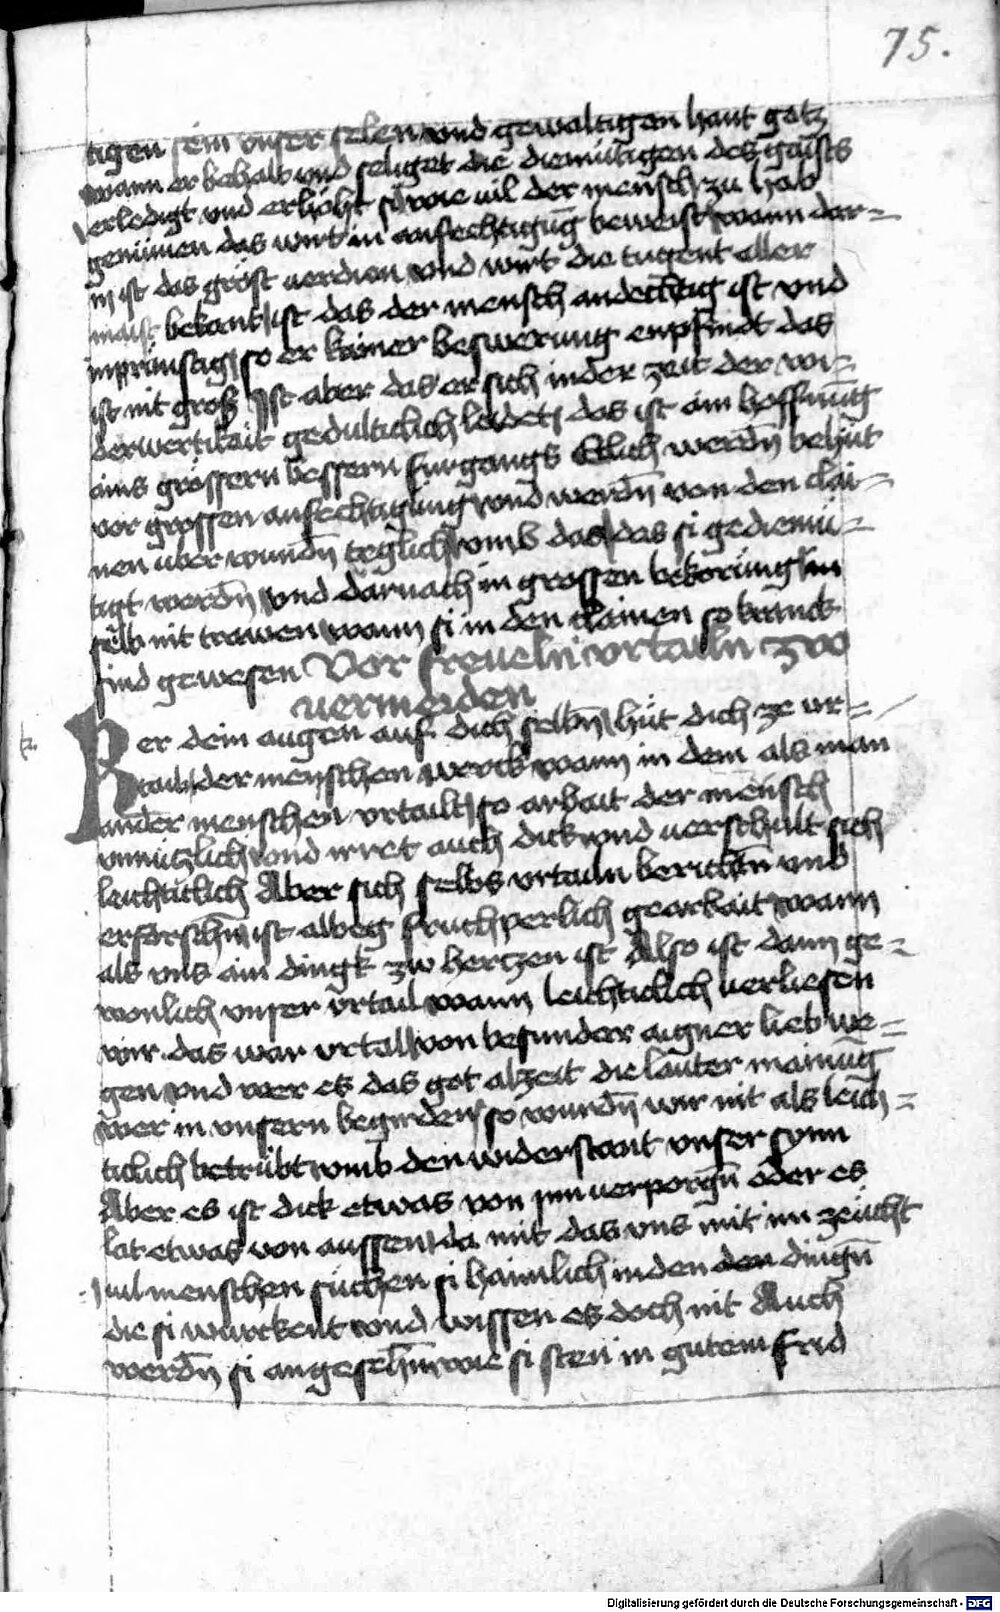 75.
tigen sein vnser selen vnd gewaltigen hant gotz
wann er behalt vnd seliget die diemütigen des gaists
erledigt vnd erhöht sū wie uil der mensch zu hab
genūmen das wirt in anfechtigūg beweist wann dar=
in ist das gröst uerdien vnd wirt die tugent aller
maist bekant ist das der mensch andechtig ist vnd
inprünstig so er kainer beswerung enpfindt das
ist nit groß Ist aber das er sich in der zeit der wi=
derwertikait gedulticlich leidet das ist ain hoffnūng
ains grössern bessern furgangs Etlich werdn̄ behüt
vor grossen anfechtigung vnd werdn̄ von den clai=
nen uber wundn̄ teglich vmb das das si gediemü=
tigt werdn̄ vnd darnach in grossen bekorung in
selb nit trawen wann si in den clainen so kranck
sind gewesen Vor freueln vrtailn zw
uermeiden
k.
Ker dein augen auf dich selbn̄ hüt dich ze vr=
tailn der menschen werck wann in dem als man
ander menschen vrtailt so arbait der mensch
vnnützlich vnd irret auch dick vnd uerschult sich
leichticlich Aber sich selbs vrtailn berichtn̄ vnd
erforschn̄ ist alweg fruchperlich gearbait wann
als vns ain dingk zw hertzen ist Also ist dann ge=
wonlich vnser vrtail wann leichticlich uerliesen
wir das war vrtail von besunder aigner lieb we=
gen vnd wer es das got alzeit die lauter mainūg
wer in vnsern begirden so wurdn̄ wir nit als leich=
ticlich betrübt vmb den widerstant vnser synn
Aber es ist dick etwas von inn uerporgn̄ oder es
lat etwas von aussen da mit das vns mit im zeücht
uil menschen süchen si haimlich in den den dingn̄
die si wurckent vnd wissen es doch nit Auch
werdn̄ si angesehn̄ wie si sten in gutem frid
Digitalisierung gefördert durch die Deutsche Forschungsgemeinschaft - DFG